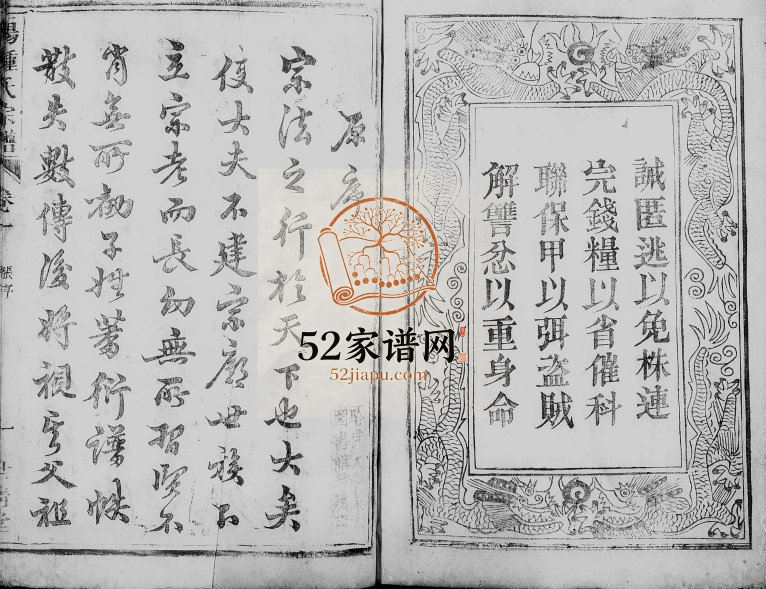 誡匿逃以免株連
完錢糧以省催科
聯保甲以弭盜賊
解讐忿以重身命
原序
宗法之行於天下也大矣
後士大夫不建宗廟世族不
立宗老而長幼無所習賢不
肖無所勸子姓蕃衍譜帙
散失數傳後將視其父祖
氏宗譜
卷之一
52家谱网
52jiapu.com
圖書館